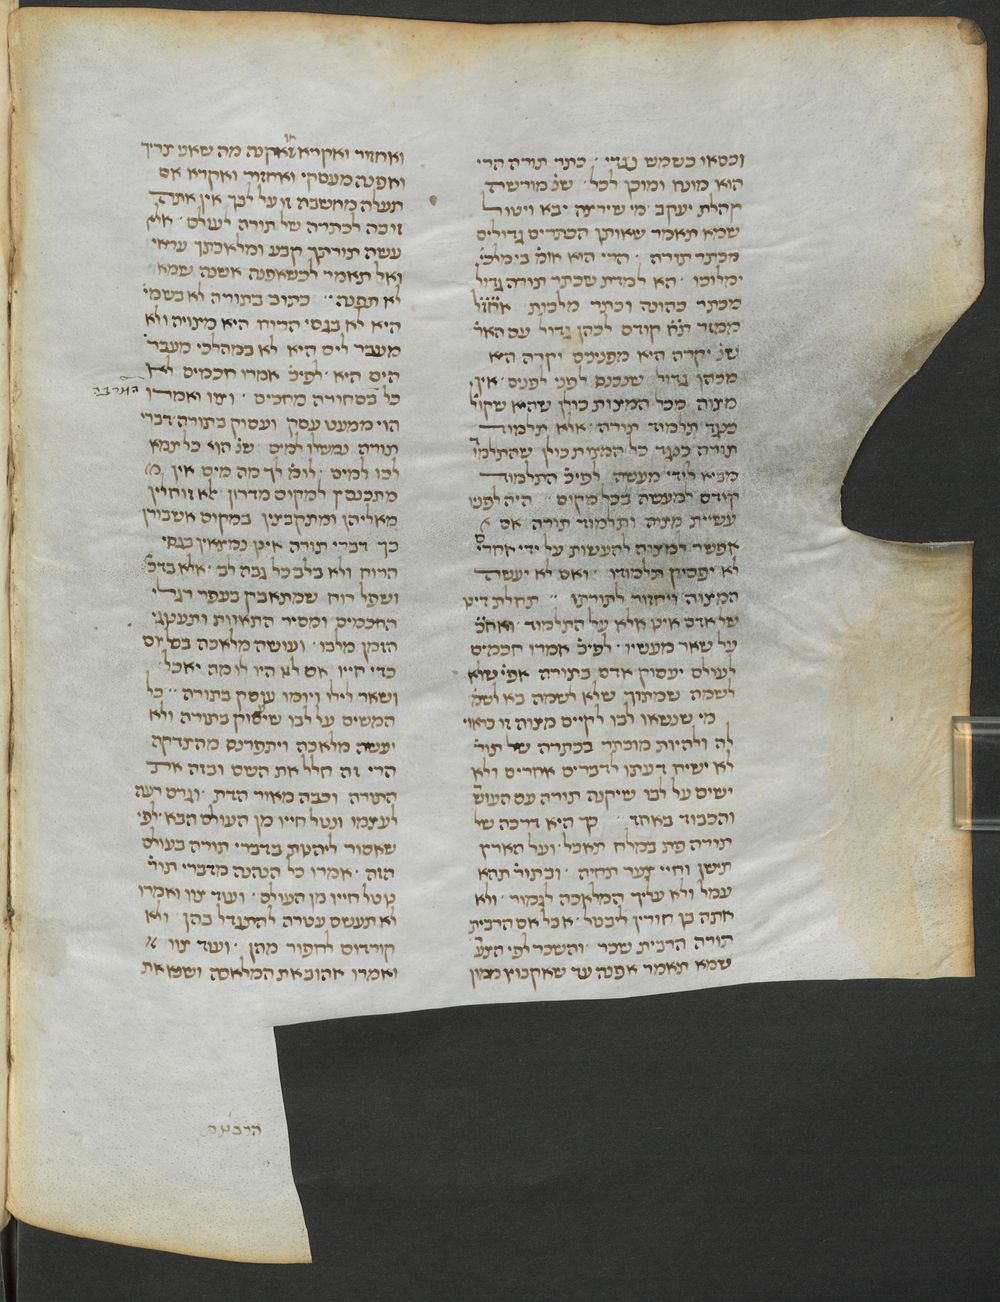 וכסאו כשמש נגדי · כתר תורה הרי
הוא מונח ומוכן לכל · שנ׳ מורשה
קהלת יעקב · מי שירצה יבא ויטול
שמא תאמר שאותן הכתרים גדולים
מכתר תורה · הרי הוא אומ׳ בי מלכי׳
ימלוכו · הא למדת שכתר תורה גדול
מכתר כהונה וכתר מלכות אחז״ל
ממזר ת״ח קודם לכהן גדול עם האר׳
שנ׳ יקרה היא מפנינים יקרה היא
מכהן גדול שנכנס לפני לפנים · אין
מצוה מכל המצות כולן שהיא שקול׳
כנגד תלמוד תורה · אלא תלמוד
תורה כנגד כל המצות כולן שהתלמוד
מביא לידי מעשה לפיכ׳ התלמוד
קודם למעשה בכל מקום · היה לפניו
עשיית מצוה ותלמוד תורה אם א׳
אפשר למצוה להעשות על ידי אחרים
לא יפסיק תלמודו · ואם לא יעשה
המצוה ויחזור לתורתו · תחלת דינו
של אדם אינו אלא על התלמוד · ואח״כ
על שאר מעשיו · לפיכ׳ אמרו חכמים
לעולם יעסוק אדם בתורה אפי׳ שלא
לשמה שמתוך שלא לשמה בא לשמ׳
מי שנשאו לבו לקיים מצוה זו כראוי
לה ולהיות מוכתר בכתרה של תור׳
לא ישיח דעתו לדברים אחרים ולא
ישים על לבו שיקנה תורה עם העושר
והכבוד באחד · כך היא דרכה של
תורה פת במלח תאכל · ועל הארץ
תישן וחיי צער תחיה · ובתור׳ תהא
עמל ולא עליך המלאכה לגמור · ולא
אתה בן חורין ליבטל · אבל אם הרבית
תורה הרבית שכר · והשכר לפי הצער
שמא תאמר אפנה עד שאקבוץ ממון
ואחזור ואקרא או אקנה מה שאני צריך
ואפנה מעסקי ואחזור ואקרא אם
תעלה מחשבה זו על לבך אין אתה
זוכה לכתרה של תורה לעולם · אלא
עשה תורתך קבע ומלאכתך עראי
ואל תאמר לכשאפנה אשנה שמא
לא תפנה · כתוב בתורה לא בשמי׳
היא לא בגסי הרוח היא מצויה ולא
מעבר לים היא לא במהלכי מעבר
הים היא · לפיכ׳ אמרו חכמים לא
המרבה
כל בסחורה מחכים · וצוו ואמרו
הוי ממעט עסק ועסוק בתורה · דברי
תורה נמשלו למים · שנ׳ הוי כל צמא
לכו למים · לומ׳ לך מה מים אין מ׳
מתכנסין למקום מדרון · אלא זוחלין
מאליהן ומתקבצין במקום אשבורן
כך דברי תורה אינן נמצאין בגסי
הרוח ולא בלב כל גבה לב · אלא בדכא
ושפל רוח שמתאבק בעפר רגלי
החכמים ומסיר התאוות ותענוגי
הזמן מלבו · ועושה מלאכה בכל יום
כדי חייו אם לא היו לו מה יאכל ·
ושאר לילו ויומו עוסק בתורה · כל
המשים על לבו שיעסוק בתורה ולא
יעשה מלאכה ויתפרנס מהצדקה
הרי זה חלל את השם ובזה את
התורה וכבה מאור הדת · וגרם רעה
לעצמו ונטל חייו מן העולם הבא · לפי
שאסור ליהנות בדברי תורה בעולם
הזה · אמרו כל הנהנה מדברי תור׳
נוטל חייו מן העולם · ועוד צוו ואמרו
לא תעשם עטרה להתגדל בהן ולא
קורדום לחפור מהן · ועוד צוו
ואמרו אהוב את המלאכה ושנא את
הרבנות